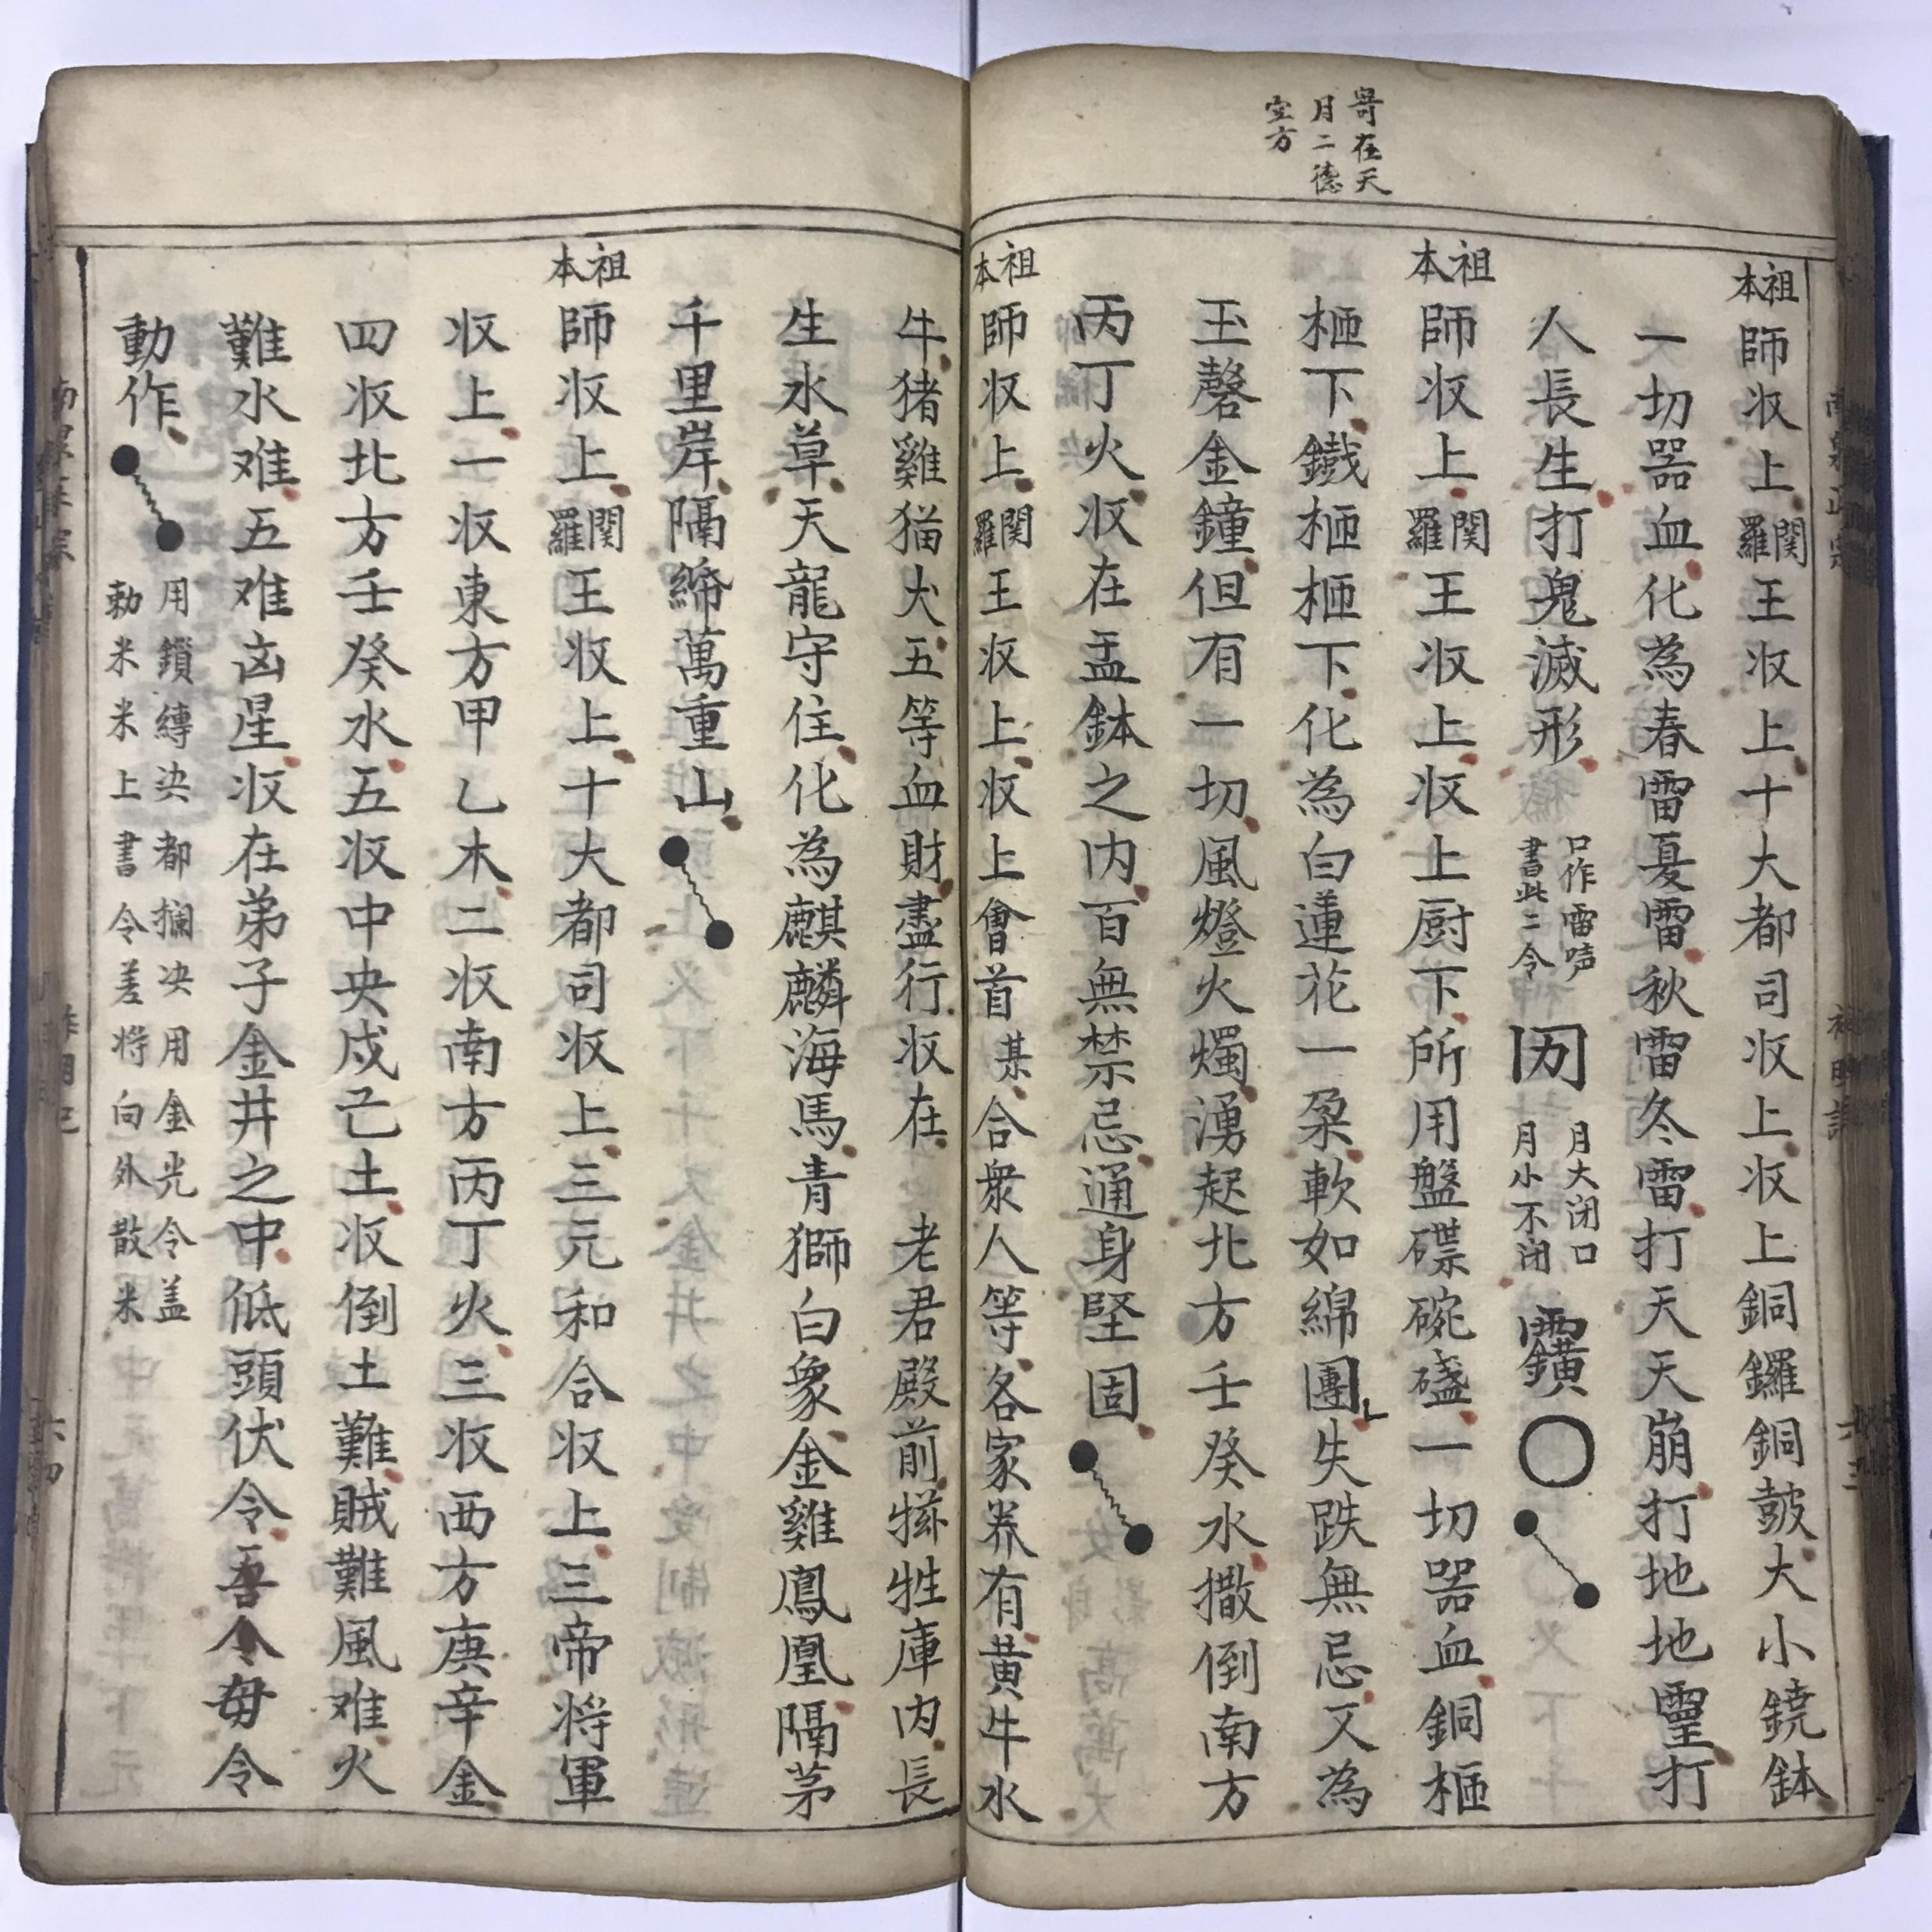 寄在天
月二德
空方
祖本師收上関羅王收上十大都司收上收上銅鑼銅鼓大小鐃鉢
一切器血化為春雷夏雷秋雷冬雷打天天崩打地地靈打
人長生打鬼滅形
口作雷声
書此二令
月大闭口
月小不闭
祖本師收上関羅王收上收上厨下所用盤碟碗盞一切器血銅柩
柩下鐵柩柩下化為白蓮花一朶軟如綿團失跌無忌又為
玉磬金鐘但有一切風燈火燭湧起北方壬癸水撒倒南方
丙丁火收在盂鉢之内百無禁忌通身堅固
祖本師收上関羅王收上收上會首某合衆人等各家养有黄牛水
牛猪雞猫犬五等血財盡行收在 老君殿前犠牲庫内長
生水草天龍守住化為麒麟海馬青獅白象金雞鳳凰隔茅
千里岸隔締萬重山
祖本師收上関羅王收上十大都司收上三元和合收上三帝将軍
收上一收東方甲乙木二收南方丙丁火三收西方庚辛金
四收北方壬癸水五收中央戍己土收倒土難賊難風难火
難水难五难凶星收在弟子金井之中低頭伏令吾令毋令
動作
用鎖縛决都攔决用金光令盖
勅米米上書令差将向外散米